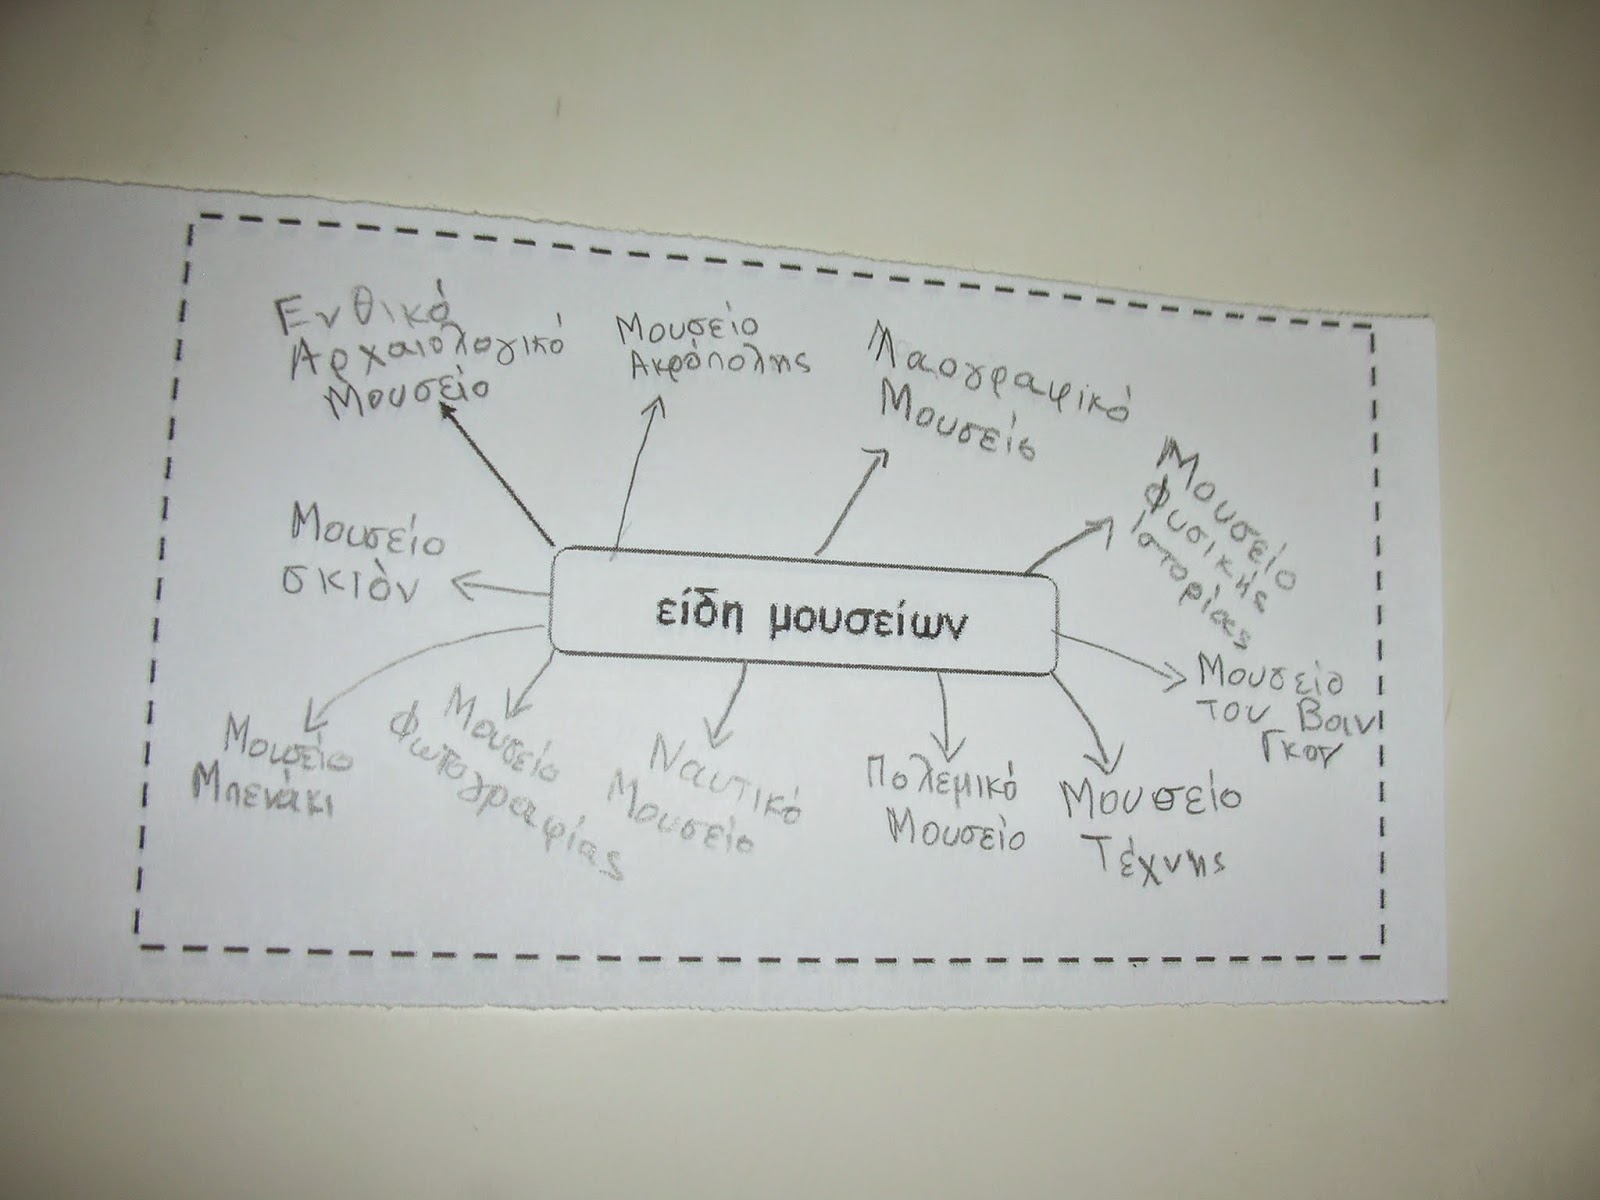 Ενθικό
Αρχαιολογικό
Μουσείο
Μουσείο
Ακρόπολης
Λαογραφικό
Μουσείο
Μουσείο
Φυσικής
Ιστορίας
Μουσείο
σκιόν
είδη μουσείων
Μουσείο
του Βαιν
Γκογ
Μουσείο
Μπενάκι
Μουσείο
Φωτογραφίας
Ναυτικό
Μουσείο
Πολεμικό
Μουσείο
Μουσείο
Τέχνης